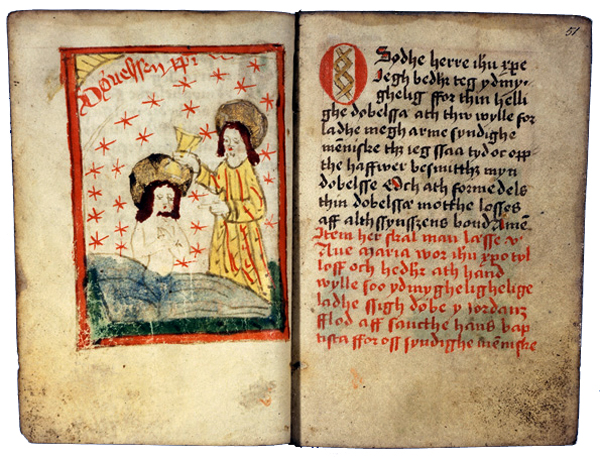 Døuelssen xpi
57
O Sødhe herre ihu xpe
Jegh bedhr teg ydmy-
ghelig ffor thin helli
ghe døbelssæ ath thw wylle for
ladhe megh arme syndighe
mēniske thz ieg ssaa tydoc opp
the haffwer besmitthz myn
døbelsse Och ath forme dels
thin døbelssæ motthe løsses
aff althssynsszens bond Amē
Item her skal man læsse v
Aue maria wor ihu xpo tyl
loff och hedhr ath hand
wylle soo ydmyghelighelige
ladhe ssigh døbe y iordanz
fflod aff sancthe hans bap
tista ffor oss syndighe mēniske